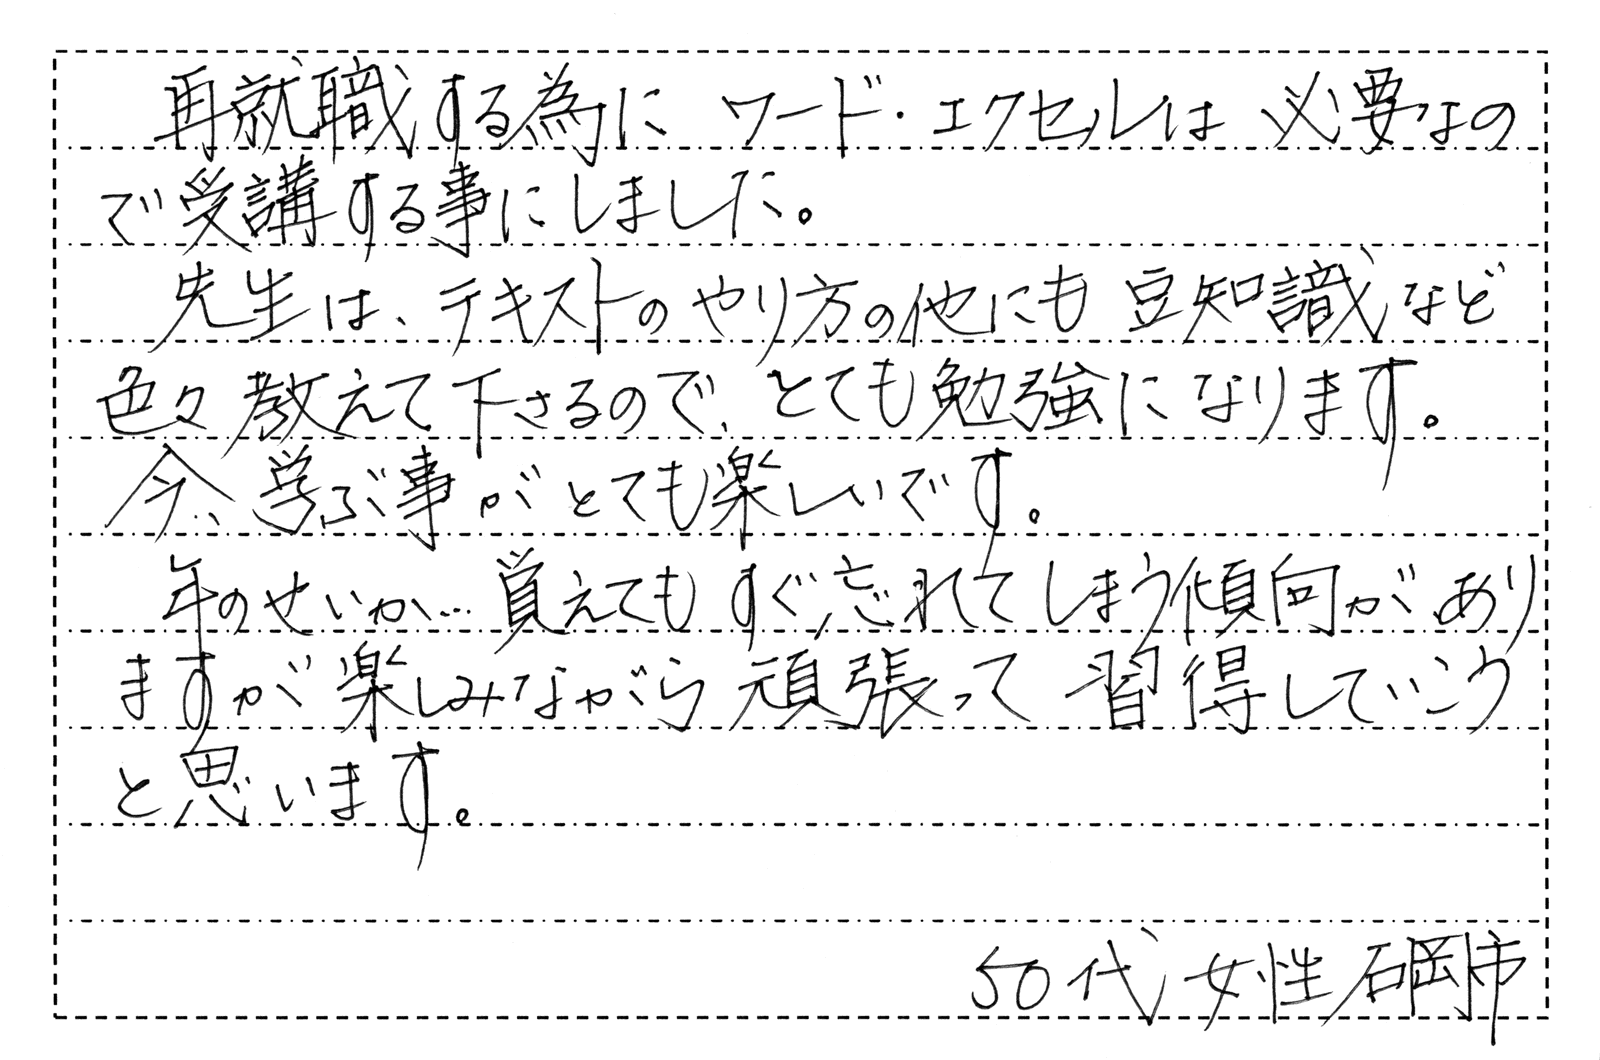 再就職する為に ワード・エクセルは 必要なの
で受講する事にしました。
先生は、テキストのやり方の他にも 豆知識など
色々教えて下さるので、とても勉強になります。
今、学ぶ事がとても楽しいです。
年のせいか…覚えてもすぐ忘れてしまう傾向があり
ますが楽しみながら頑張って 習得していこう
と思います。
50代 女性 石岡市